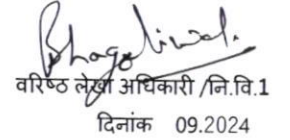 वरिष्ठ लेखा अधिकारी /नि.वि.1
दिनांक 09.2024